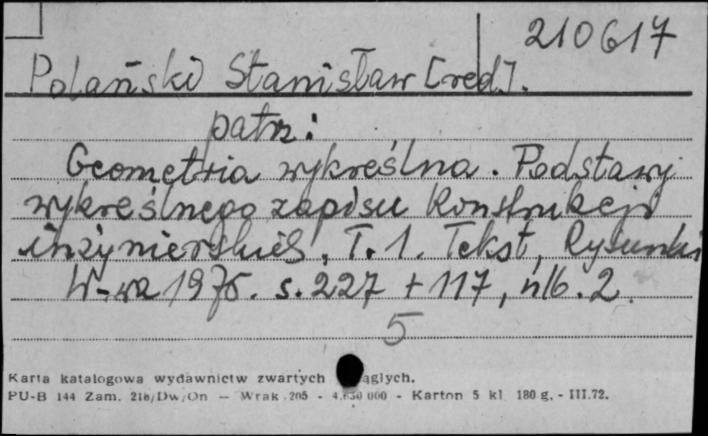 210617
Polański Stanisław [red].
patrz:
Geometria wykreślna. Podstawy
wykreślnego zapisu konstrukcji
inżynierskich, T. 1. Tekst, Rysunki
W-wa 1975. s. 227 + 117, nlb. 2.
5
Karta katalogowa wydawnictw zwartych ągłych.
PU-B 144 Zam. 218/Dw/On — Wrak 205 - 4.630 000 - Karton 5 kl. 180 g. - III.72.